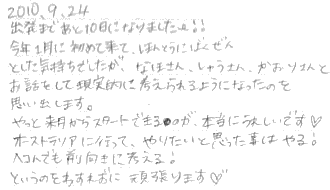 2010.9.24
出発まであと10日になりましたー!!
今年1月に初めて来て、ほんとうにばくぜん
とした気持ちでしたが、なほさん、しょうさん、かおりさんと
お話をして現実的に考えられるようになったのを
思い出します。
やっと来月からスタートできるのが、本当にうれしいです♡
オーストラリアに行って、やりたいと思った事はやる!
ヘコんでも前向きに考える!
というのをわすれずに頑張ります♡